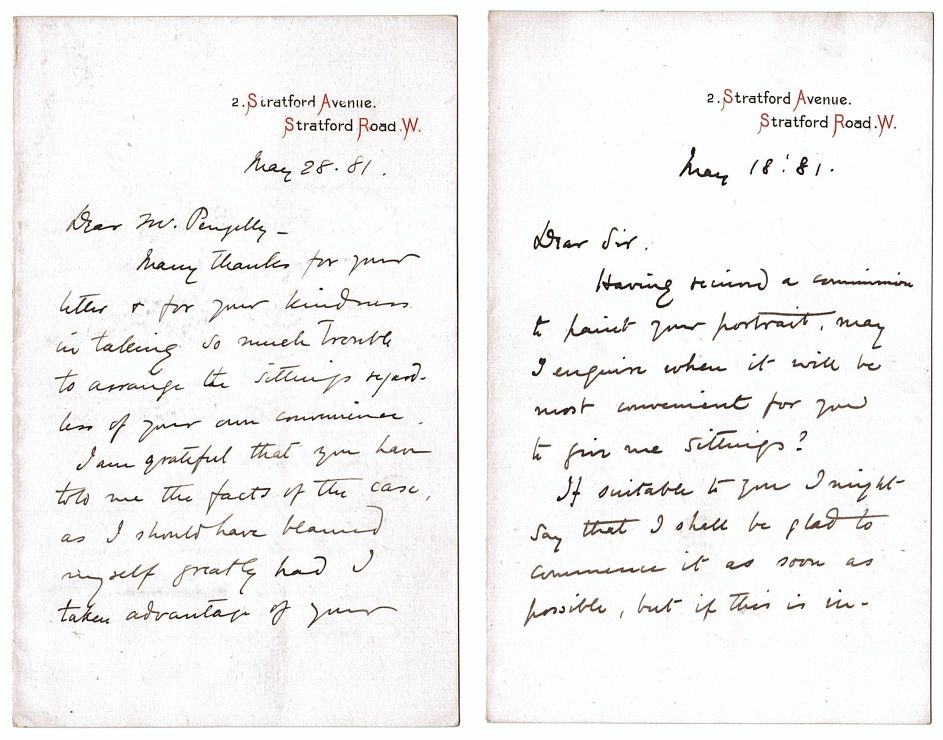 2. Stratford Avenue.
Stratford Road. W.
May 28. 81.
Dear Mr. Pengelly_
Many thanks for your
letter & for your kindness
in taking so much trouble
to arrange the sittings regard-
less of your own convenience.
I am grateful that you have
told me the facts of the case,
as I should have blamed
myself greatly had I
taken advantage of your
2. Stratford Avenue.
Stratford Road. W.
May 18' 81.
Dear Sir.
Having received a commission
to paint your portrait, may
I enquire when it will be
most convenient for you
to give me sittings?
If suitable to you I might
say that I shall be glad to
commence it as soon as
possible, but if this is in-